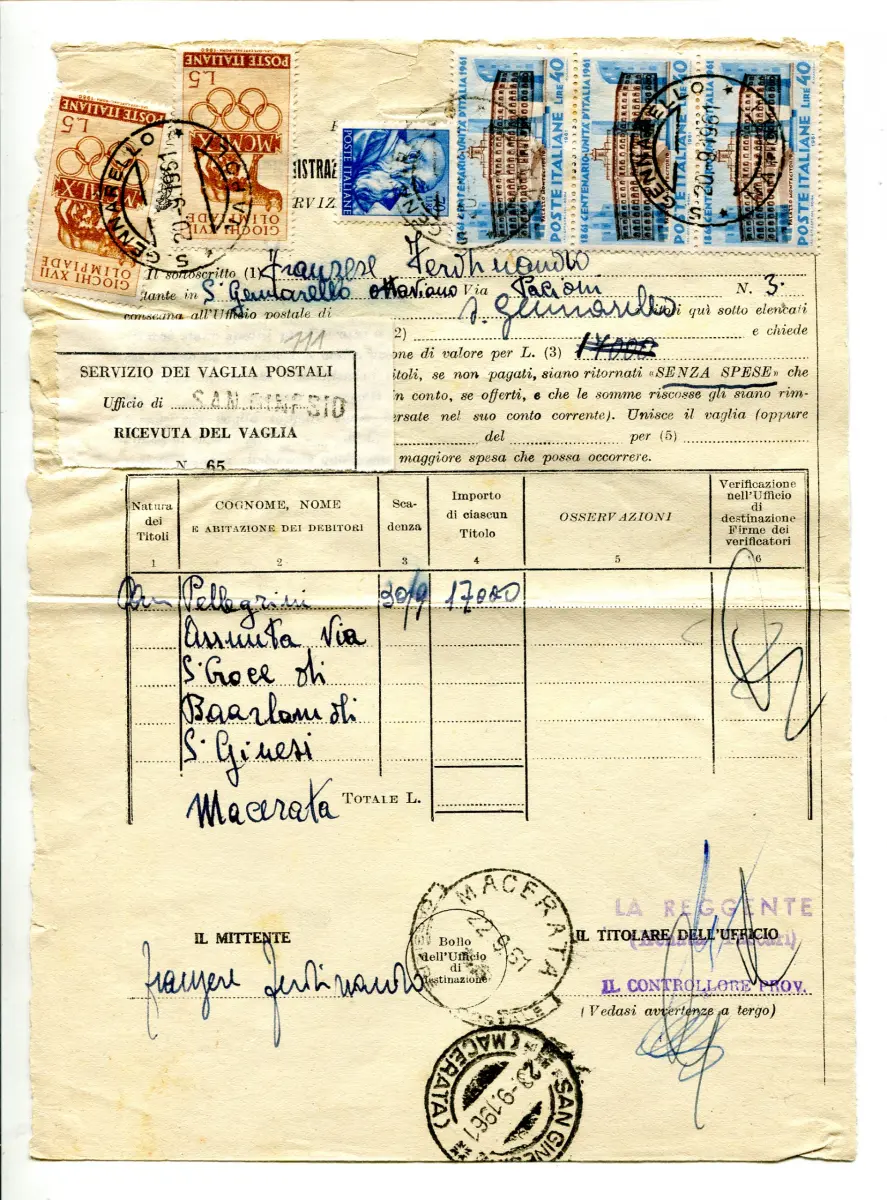 L5 POSTE ITALIANE
MCMLX
GIOCHI XVII OLIMPIADE
L5 POSTE ITALIANE
MCMLX
GIOCHI XVII OLIMPIADE
POSTE ITALIANE
1861 CENTENARIO UNITÀ D'ITALIA 1961
POSTE ITALIANE LIRE 40
1861 CENTENARIO UNITÀ D'ITALIA 1961
POSTE ITALIANE LIRE 40
1861 CENTENARIO UNITÀ D'ITALIA 1961
POSTE ITALIANE LIRE 40
S. GENNARELLO
20-9.1961
S. GENNARELLO
20.9.1961
ISTRAZ
RVIZ
Il sottoscritto (1) Franzese Ferdinando
tante in S. Gennarello Ottaviano Via Pacioni N. 3.
consegna all'Ufficio postale di S. Gennarello i titoli quì sotto elencati
2) e chiede
one di valore per L. (3) 17000
itoli, se non pagati, siano ritornati «SENZA SPESE» che
in conto, se offerti, e che le somme riscosse gli siano rim-
ersate nel suo conto corrente). Unisce il vaglia (oppure
del per (5)
maggiore spesa che possa occorrere.
111
SERVIZIO DEI VAGLIA POSTALI
Ufficio di SAN GINESIO
RICEVUTA DEL VAGLIA
N. 65
Natura dei Titoli
COGNOME, NOME E ABITAZIONE DEI DEBITORI
Sca-denza
Importo di ciascun Titolo
OSSERVAZIONI
Verificazione nell'Ufficio di destinazione Firme dei verificatori
1 2 3 4 5 6
Pellegrini 30/9 17000
Assunta Via
S. Croce di
Baarlam di
S. Ginesi
Macerata
TOTALE L.
IL MITTENTE
Franzese Ferdinando
MACERATA
22 9 61
Bollo
dell'Ufficio
di
destinazione
LA REGGENTE
IL TITOLARE DELL'UFFICIO
IL CONTROLLORE PROV.
(Vedasi avvertenze a tergo)
SAN GINESIO
(MACERATA)
23-9.1961